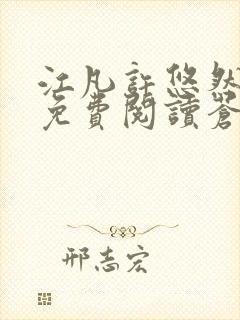 江凡許悠然
免費閱讀蒼
邢志宏